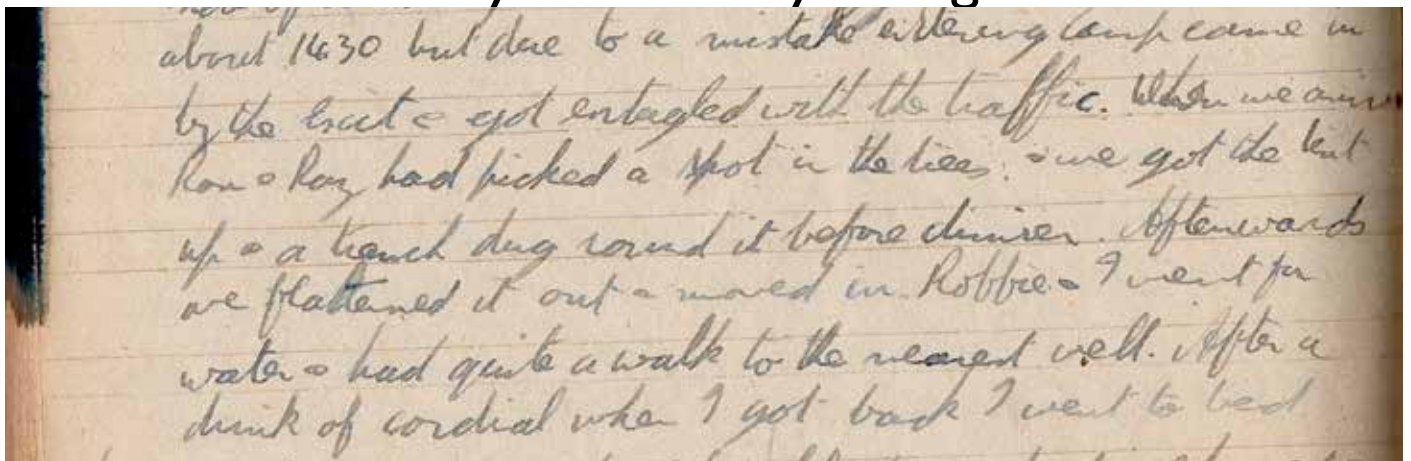 about 1630 but due to a mistake entering camp came in
by the Exit & got entagled with the traffic. When we
Ron & Ray had picked a spot in the trees. & we got the tent
up & a trench dug round it before dinner. Afterwards
we flattened it out & moved in. Robbie & I went for
water & had quite a walk to the nearest well. After a
drink of cordial when I got back I went to bed